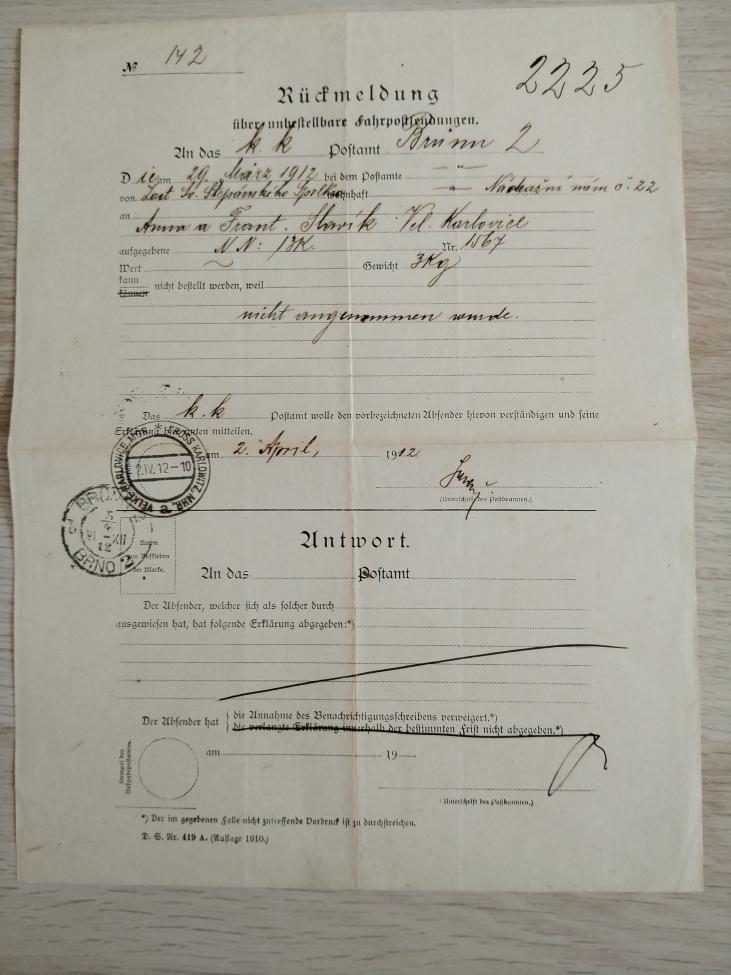 № 142
2225
Rückmeldung
über unbestellbare Fahrpostsendungen.
An das k.k Postamt Brünn 2
Die am 29. März 1912 bei dem Postamte — " —
von Sv. Štěpánského Spolku wohnhaft — " — Nádražní nám č. 22
an
Anna a Frant. Slavík Vel. Karlovice
aufgegebene N N: 13K. Nr. 1567
Wert Gewicht 3Kg
kann
können nicht bestellt werden, weil
nicht angenommen wurde.
Das k.k Postamt wolle den vorbezeichneten Absender hievon verständigen und seine
Erklärung hierunten mitteilen.
am 2. April, 1912
(Unterschrift des Postbeamten.)
GROSS KARLOWITZ, MHR. * VELKÉ KARLOVICE, MHR. a
2.IV.12-10
BRÜNN 2
5/4
VI-XII
12
BRNO 2
Antwort.
Raum
zum Aufkleben
der Marke.
An das Postamt
Der Absender, welcher sich als solcher durch
ausgewiesen hat, hat folgende Erklärung abgegeben:*)
Der Absender hat { die Annahme des Benachrichtigungsschreibens verweigert.*)
die verlangte Erklärung innerhalb der bestimmten Frist nicht abgegeben.*)
Stempel des
Aufgabepostamtes.
am 19
(Unterschrift des Postbeamten.)
*) Der im gegebenen Falle nicht zutreffende Vordruck ist zu durchstreichen.
D. S. Nr. 419 A. (Auflage 1910.)